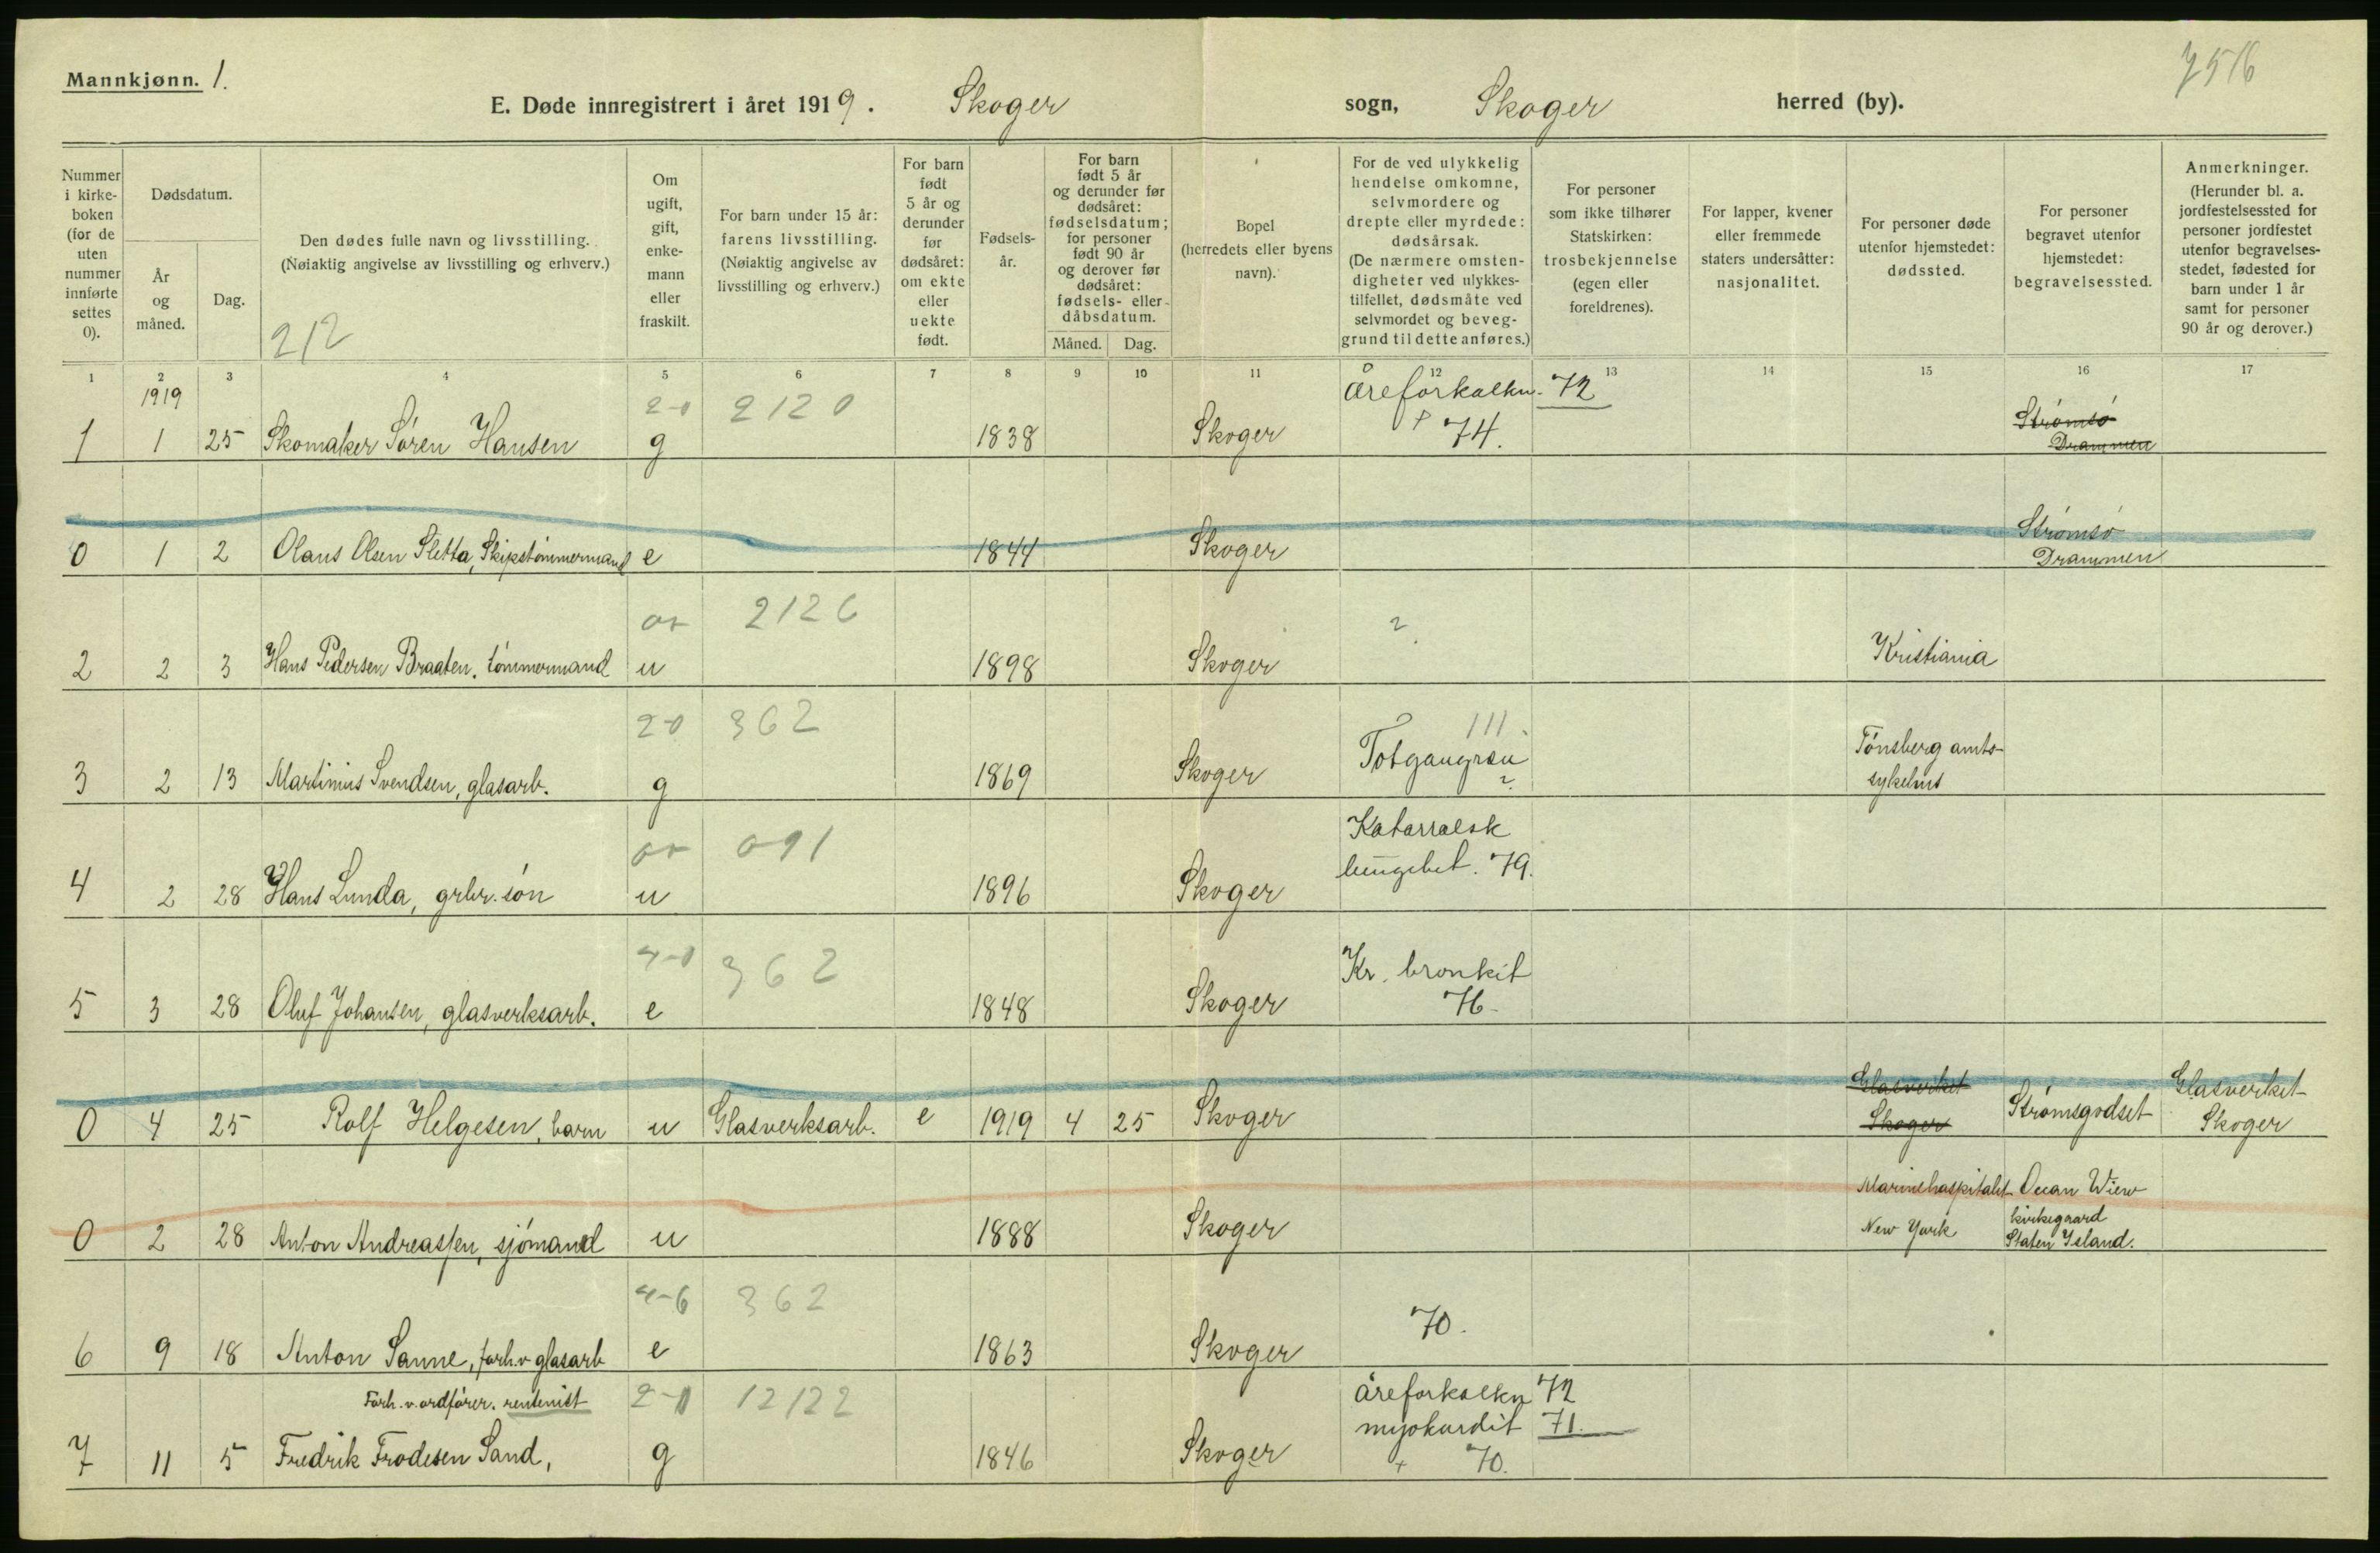 Mannkjønn. 1.
7516
E. Døde innregistrert i året 1919. Skoger sogn, Skoger herred (by).
Nummer i kirke-boken (for de uten nummer innførte settes 0).
Dødsdatum.
År og måned.
Dag.
Den dødes fulle navn og livsstilling.
(Nøiaktig angivelse av livsstilling og erhverv.)
212
Om ugift, gift, enke-mann eller fraskilt.
For barn under 15 år: farens livsstilling. (Nøiaktig angivelse av livsstilling og erhverv.)
For barn født 5 år og derunder før dødsåret: om ekte eller uekte født.
Fødsels-år.
For barn født 5 år og derunder før dødsåret: fødselsdatum; for personer født 90 år og derover før dødsåret: fødsels- eller dåbsdatum.
Måned. Dag.
Bopel (herredets eller byens navn).
For de ved ulykkelig hendelse omkomne, selvmordere og drepte eller myrdede: dødsårsak. (De nærmere omsten-digheter ved ulykkes-tilfellet, dødsmåte ved selvmordet og beveg-grund til dette anføres.)
For personer som ikke tilhører Statskirken: trosbekjennelse (egen eller foreldrenes).
For lapper, kvener eller fremmede staters undersåtter: nasjonalitet.
For personer døde utenfor hjemstedet: dødssted.
For personer begravet utenfor hjemstedet: begravelsessted.
Anmerkninger. (Herunder bl. a. jordfestelsessted for personer jordfestet utenfor begravelses-stedet, fødested for barn under 1 år samt for personer 90 år og derover.)
1 2 3 4 5 6 7 8 9 10 11 12 13 14 15 16 17
1919 2-0 2120 åreforkalkn. 72
1 1 25 Skomaker Sören Hansen g 1838 Skoger 74. Strömsö Drammen
0 1 2 Olaus Olsen Sletta, Skipstömmermand e 1844 Skoger Strömsö Drammen
2126 ?
2 2 3 Hans Pedersen Braaten, tömmermand u 1898 Skoger Kristiania
2-0 362 111.
3 2 13 Martinius Svendsen, glasarb. g 1869 Skoger Totgangræn ? Tönsberg amts-sykehus
091 Katarralsk
4 2 28 Hans Lunda, grbr. sön u 1896 Skoger lungebet. 79.
4-0 362 Kr. bronkit
5 3 28 Oluf Johansen, glasverksarb. e 1848 Skoger 76
0 4 25 Rolf Helgesen, barn u Glasverksarb. e 1919 4 25 Skoger Glasverket Skoger Strömsgodset Glasverket Skoger
0 2 28 Anton Andreassen, sjömand u 1888 Skoger Marinehospitalet New York Ocean Wiew kirkegaard Staten Island.
4-6 362 70.
6 9 18 Anton Sanne, forh.v glasarb e 1863 Skoger
Forh. v. ordförer. rentenist 2-0 12122 åreforkalkn 72
myokardit 71.
7 11 5 Fredrik Frodesen Sand, g 1846 Skoger + 70.